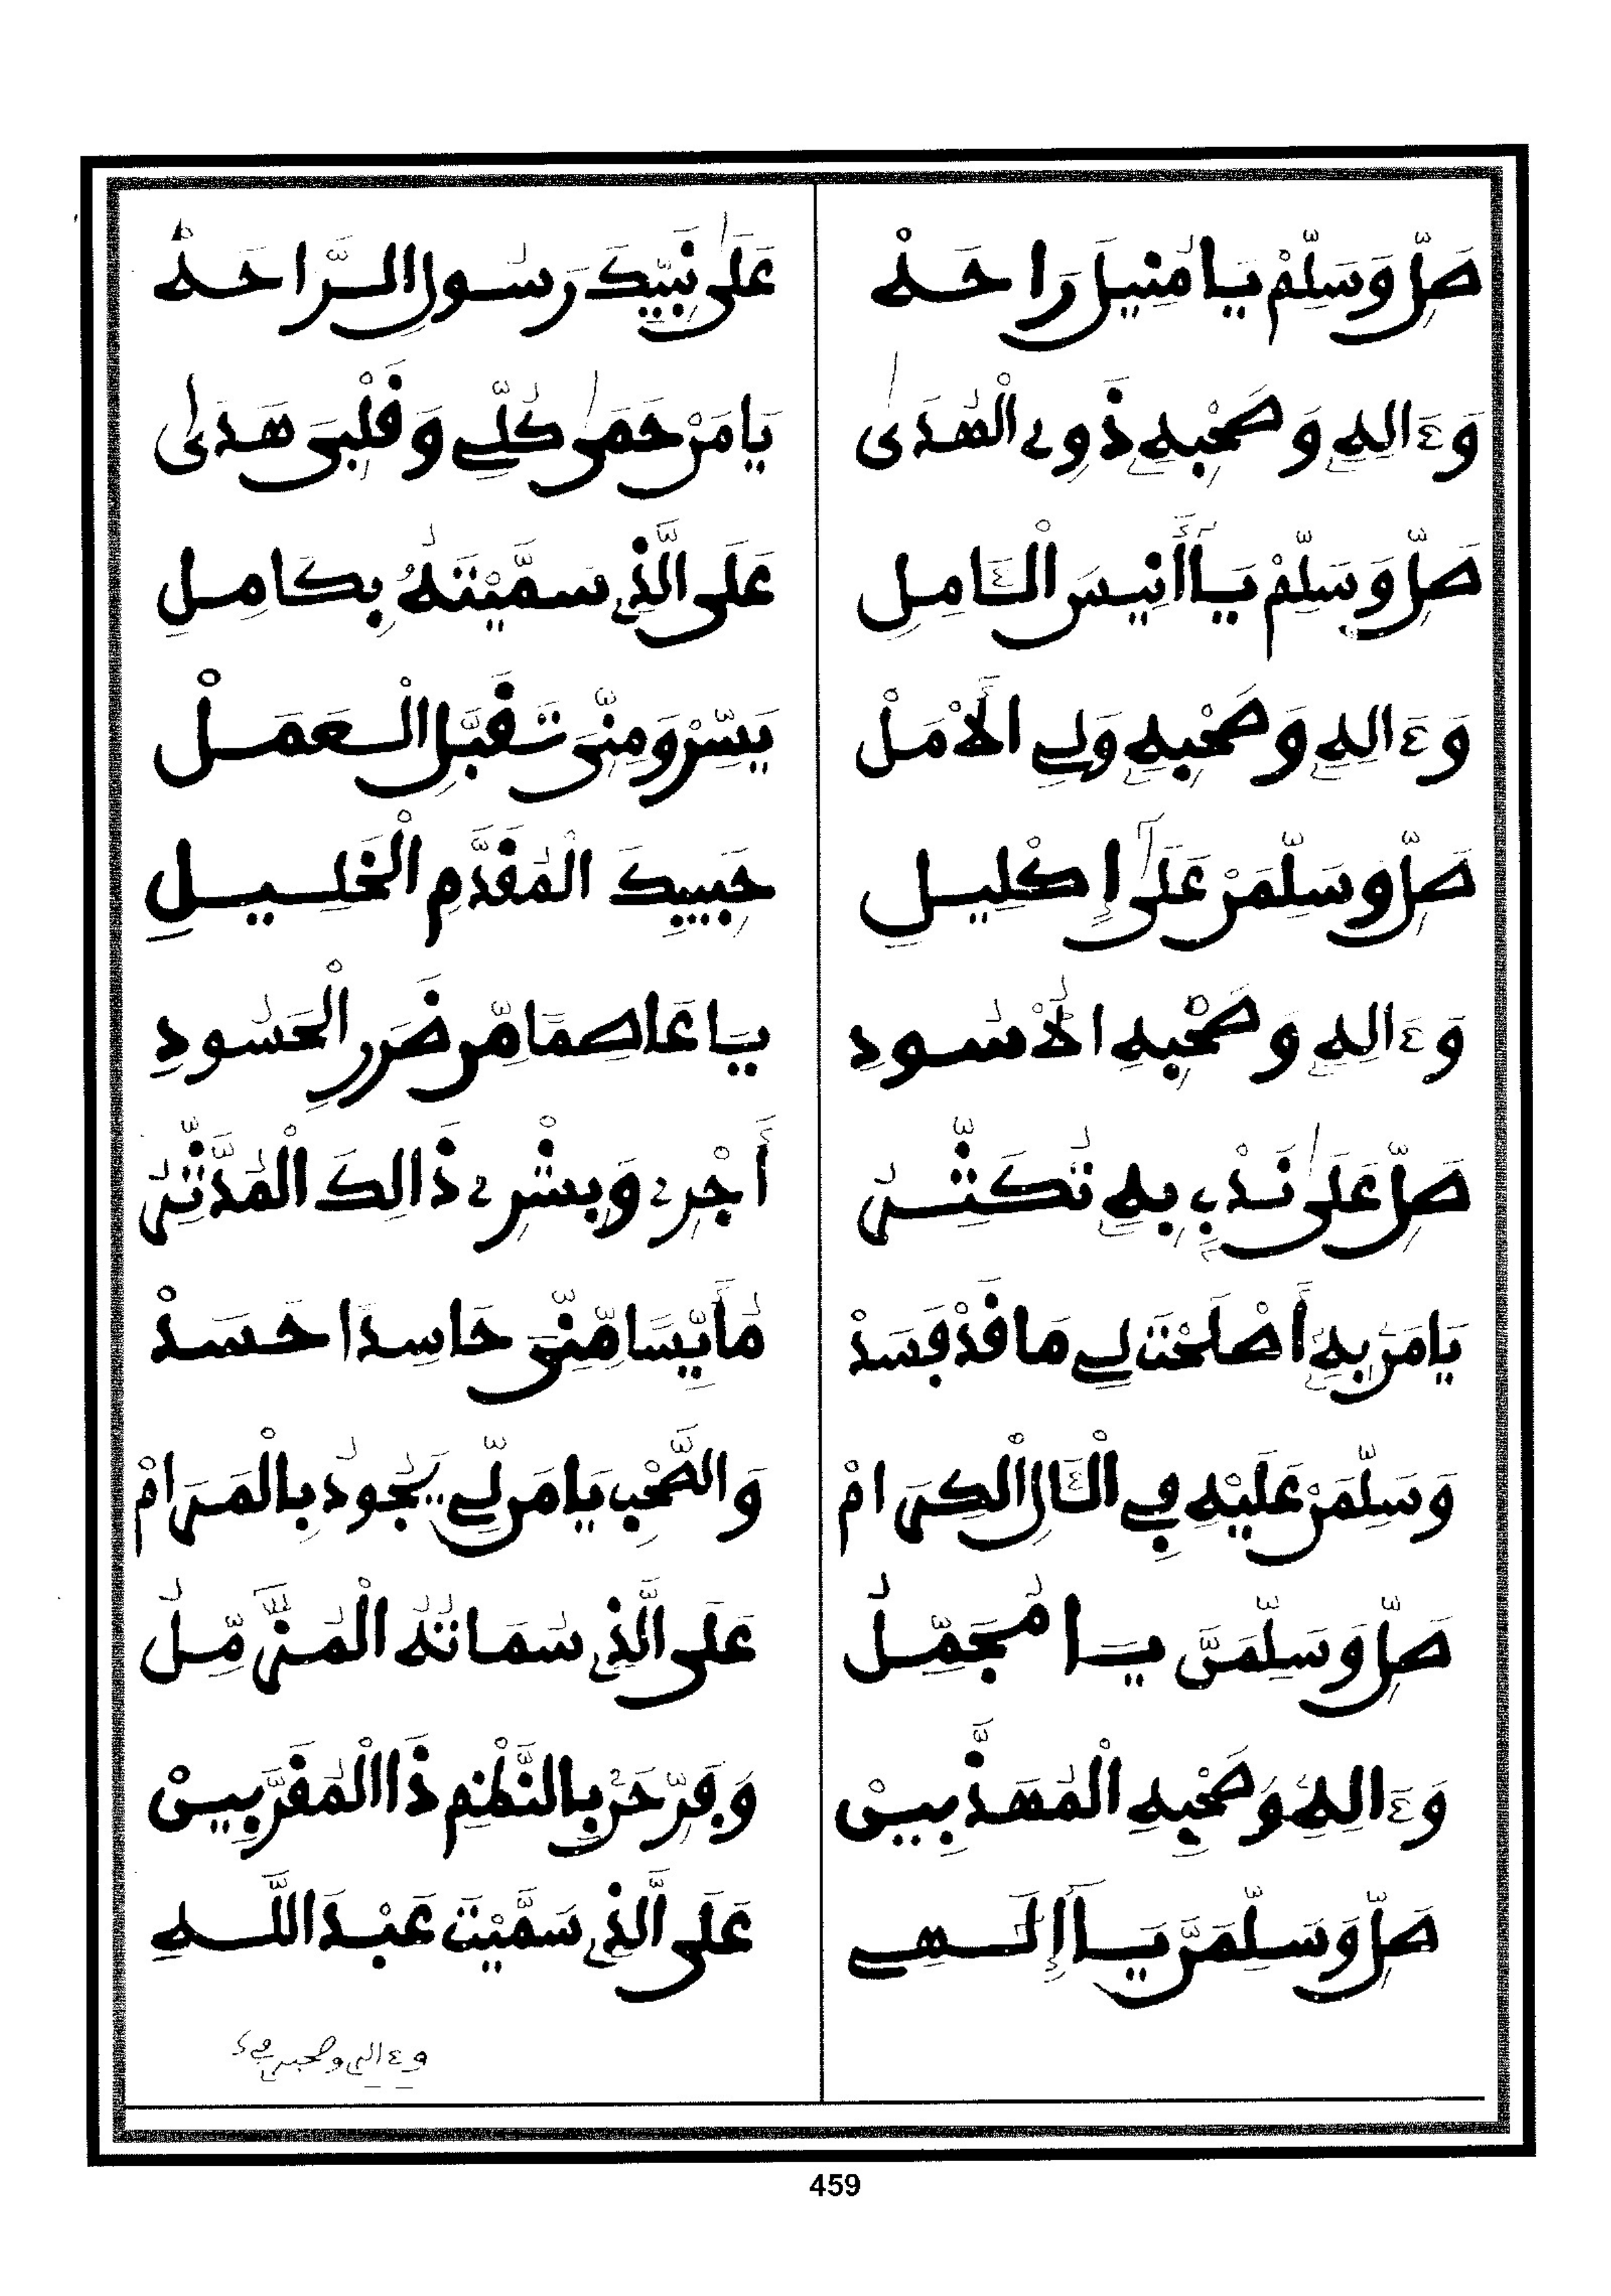 صَلِّ وَسَلِّمْ يَا مُنِيلَ رَاحَهْ عَلَىٰ نَبِيِّكَ رَسُولِ الرَّاحَهْ
وَءَالِهِ وَصَحْبِهِ ذَوِي الْهُدَىٰ يَا مَنْ حَمَىٰ كُلِّي وَقَلْبِي هَدَىٰ
صَلِّ وَسَلِّمْ يَا أَنِيسَ الْآمِلِ عَلَى الَّذِي سَمَّيْتَهُ بِكَامِلِ
وَءَالِهِ وَصَحْبِهِ وَلِي الْأَمَلْ يَسِّرْ وَمِنِّي تَقَبَّلِ الْعَمَلْ
صَلِّ وَسَلِّمَنْ عَلَىٰ إِكْلِيلِ حَبِيبِكَ الْمُقَدَّمِ الْخَلِيلِ
وَءَالِهِ وَصَحْبِهِ الْأُسُودِ يَا عَاصِمًا مِّن ضَرَرِ الْحَسُودِ
صَلِّ عَلَىٰ نَدْبٍ بِهِ تُكَثِّرُ أَجْرِي وَبِشْرِي ذَالِكَ الْمُدَّثِّرُ
يَا مَن بِهِ أَصْلَحْتَ لِي مَا قَدْ فَسَدْ مُأَيِّسًا مِّنِّي حَاسِدًا حَسَدْ
وَسَلِّمَنْ عَلَيْهِ فِي الْآلِ الْكِرَامْ وَالصَّحْبِ يَا مَن لِّي يَجُودُ بِالْمَرَامْ
صَلِّ وَسَلِّمَنَّ يَا مُجَمِّلُ عَلَى الَّذِي سُمَاتُهُ الْمُزَّمِّلُ
وَءَالِهِ وَصَحْبِهِ الْمُهَذَّبِينْ وَفَرِّحَنْ بِالنَّظْمِ ذَا الْمُقَرَّبِينْ
صَلِّ وَسَلِّمَنَّ يَا إِلَٰهِي عَلَى الَّذِي سَمَّيْتَ عَبْدَ اللَّهِ
وءاله وصحبه في
459